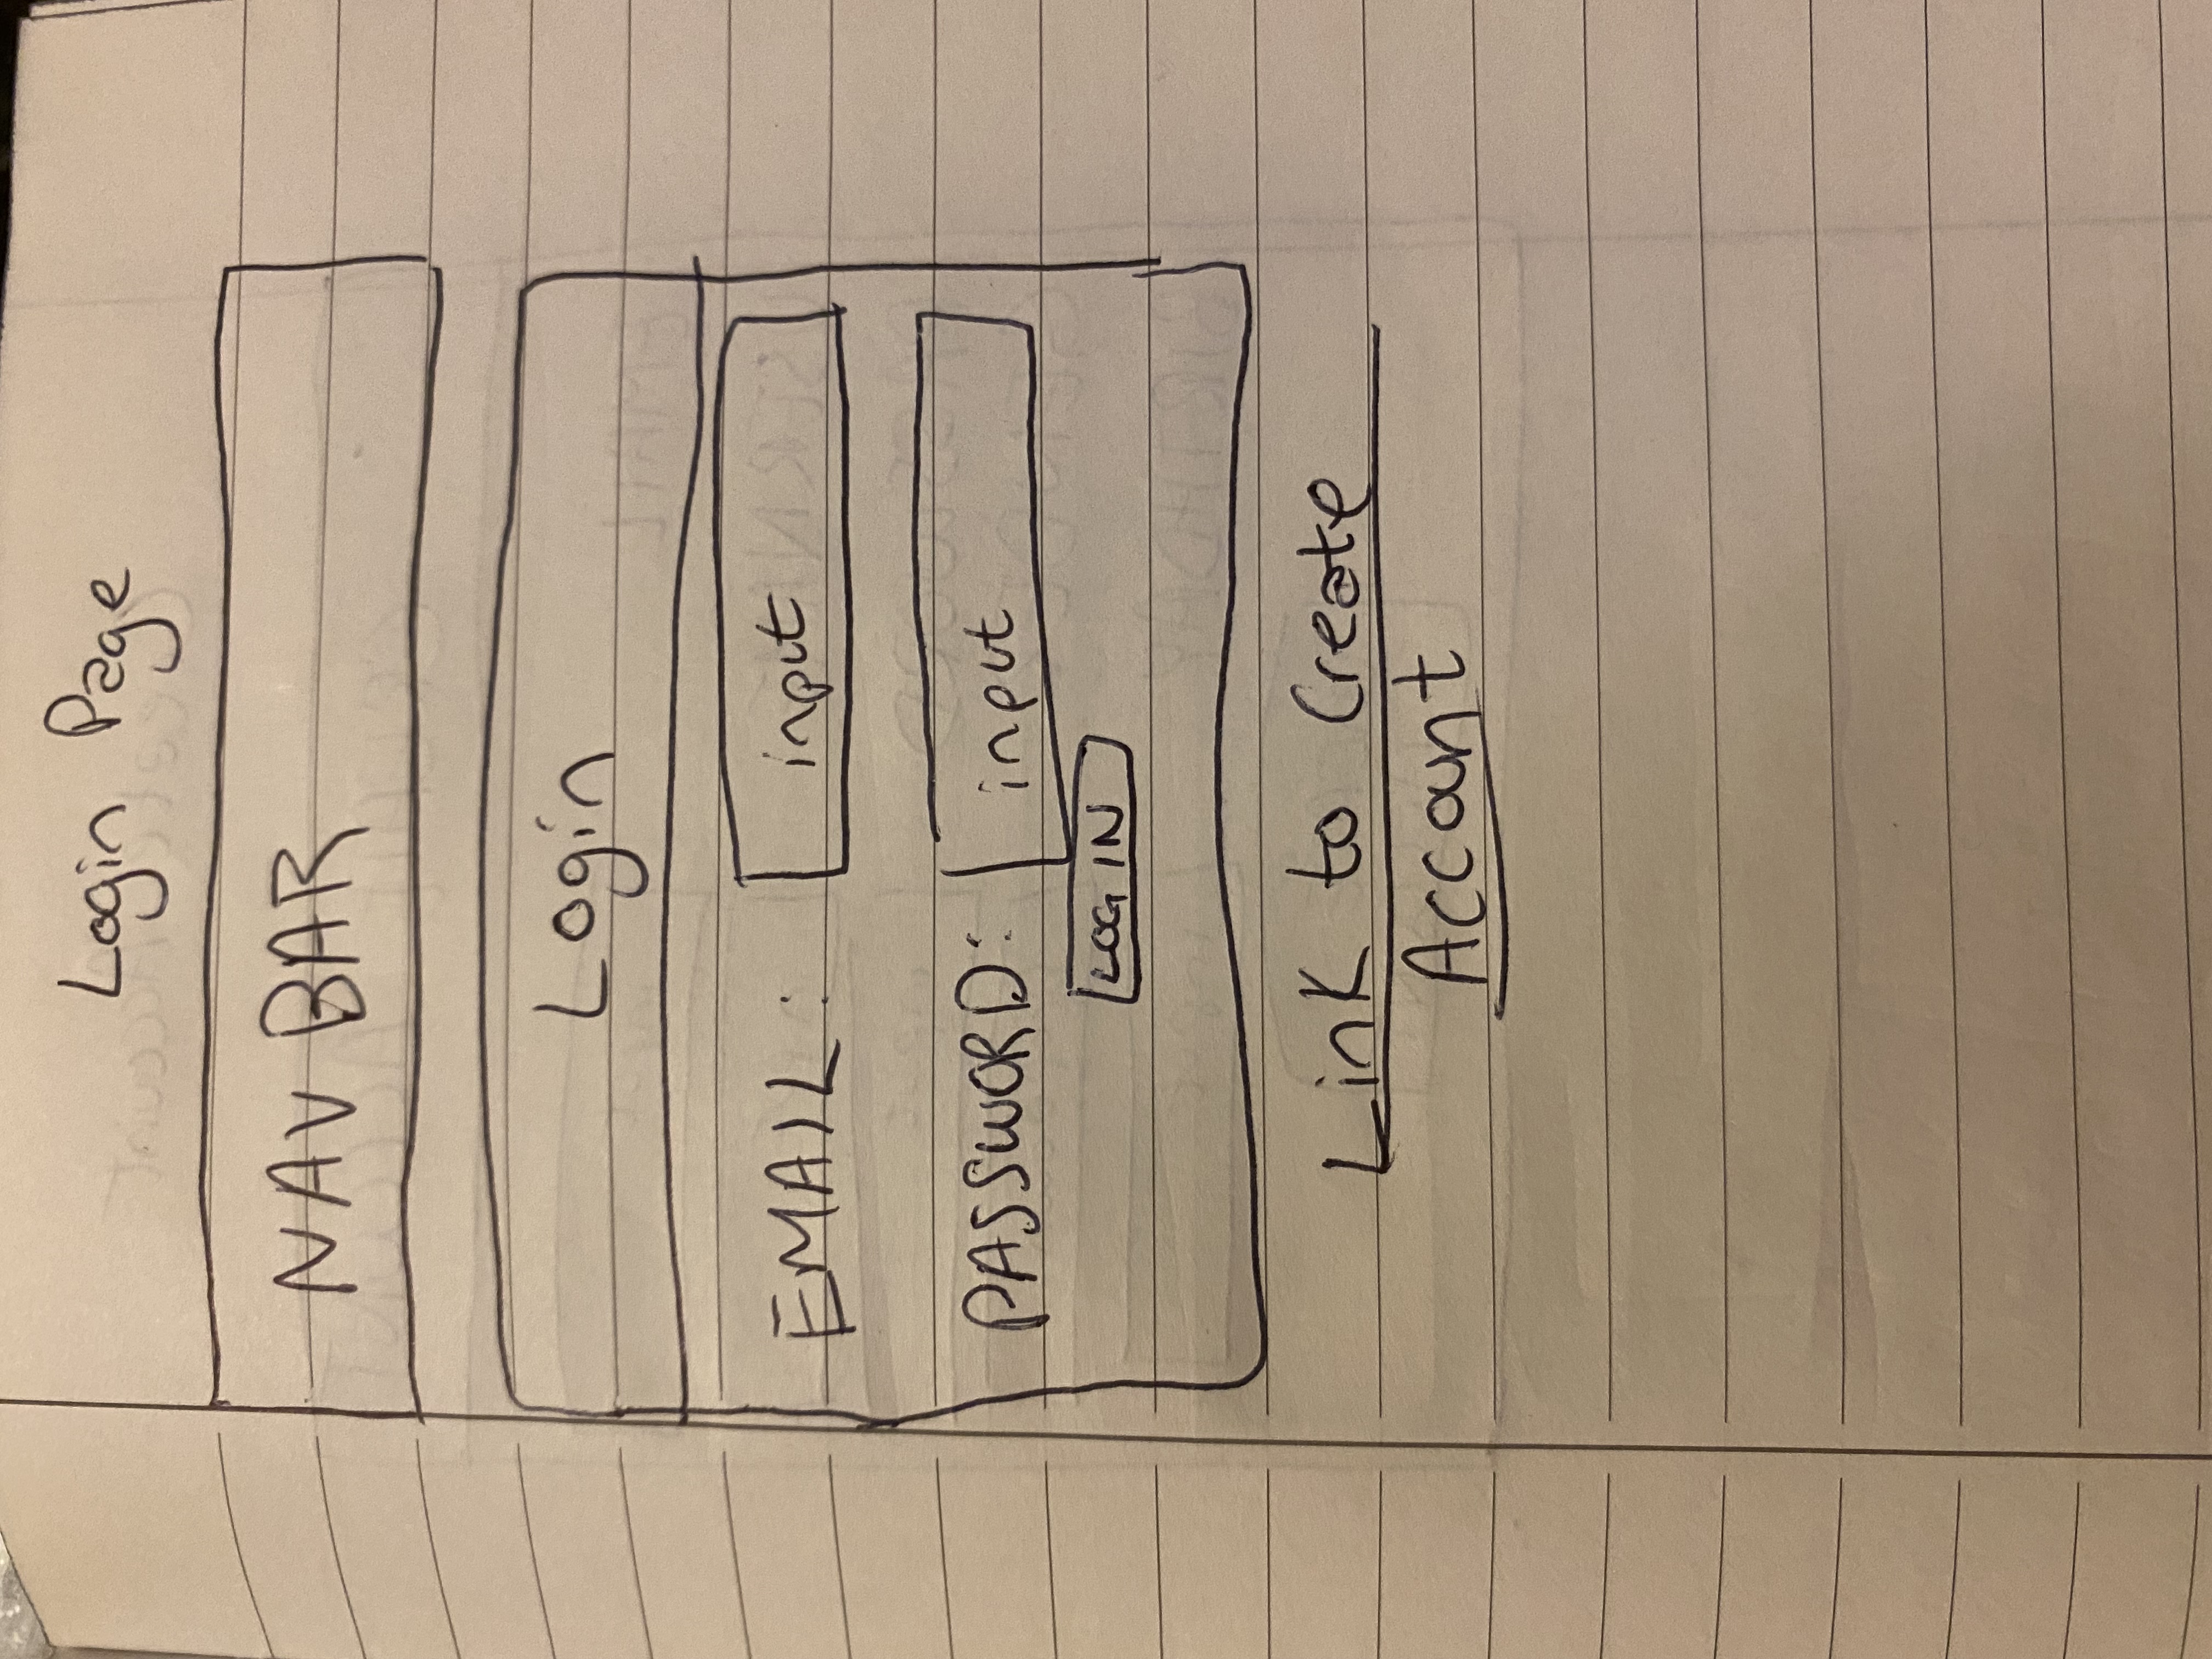 Login Page
NAV BAR
Login
EMAIL: input
PASSWORD: input
LOG IN
Link to Create
Account